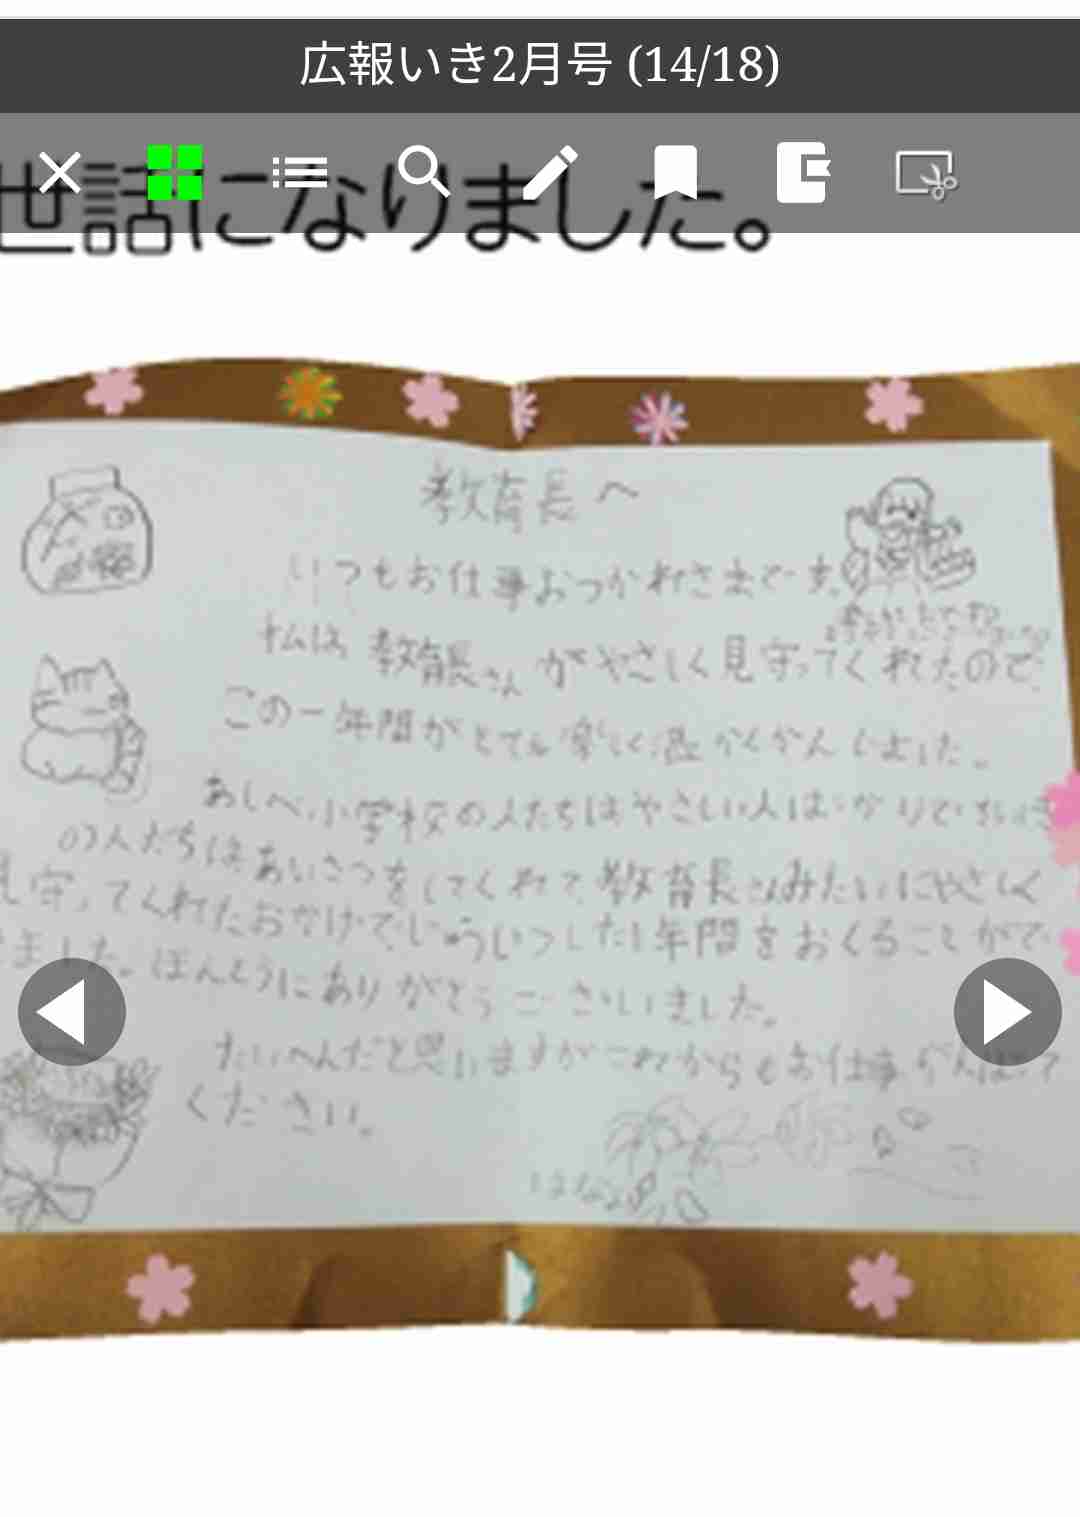 広報いき2月号 (14/18)
世話になりました。
教育長へ
いつもお仕事おつかれさまです。
私は教育長さんがやさしく見守ってくれたので
この一年間がとても楽しく温かくかんじました。
あしべ小学校の人たちはやさしい人ばかりで
の人たちはあいさつをしてくれて教育長さんみたいにやさしく
見守ってくれたおかげでじゅうじつした1年間をおくることがで
ました。ほんとうにありがとうございました。
たいへんだと思いますがこれからもお仕事がんばって
ください。